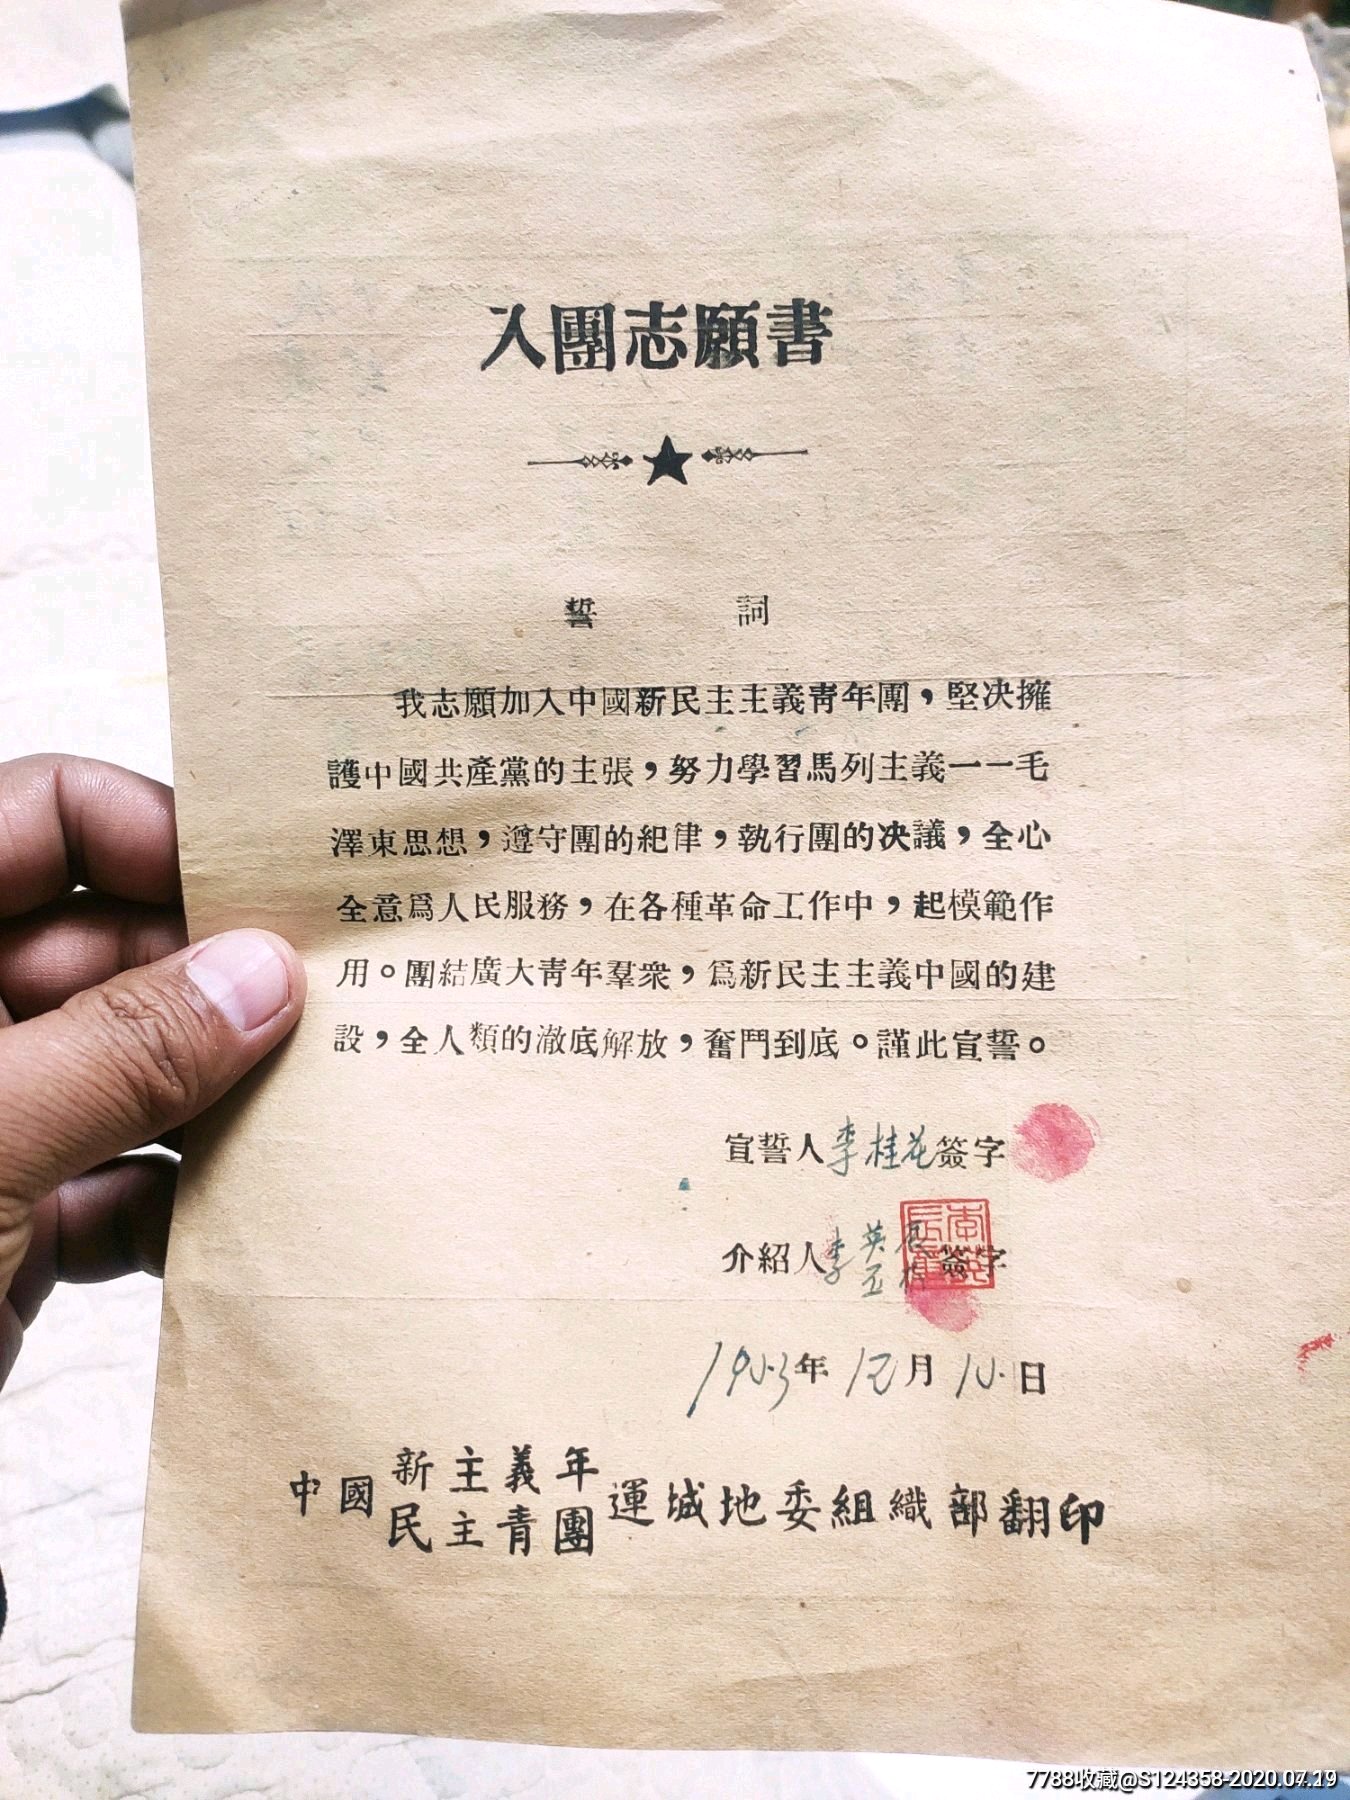 入團志願書
誓 詞
我志願加入中國新民主主義青年團，堅决擁
護中國共產黨的主張，努力學習馬列主義一一毛
澤東思想，遵守團的紀律，執行團的决議，全心
全意爲人民服務，在各種革命工作中，起模範作
用。團結廣大青年羣衆，爲新民主主義中國的建
設，全人類的澈底解放，奮鬥到底。謹此宣誓。
宣誓人李桂花簽字
介紹人李英 簽字
年 月 日
中國新民主主義青年團運城地委組織部翻印
7788收藏@S124358-2020.07.19